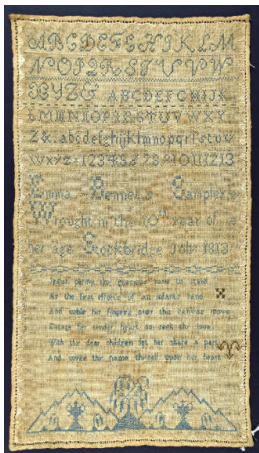 ABCDEFGHIJKLM
NOPQRSTUVW
XYZ& ABCDEFGHIJK
LMNOPQRSTUVWXY
Z&.abcdefghijklmnopqrstuv
wxyz.12345678910111213
Emma Sampler
Wrought in the 10th year of
her age Stockbridge July 1813
Jesus permit thy gracious name to stand
As the first efforts of an infants hand
And while her fingers over this canvas move
Engage her tender heart to seek thy love
With thy dear children let her share a part
And write thy name thyself upon her heart